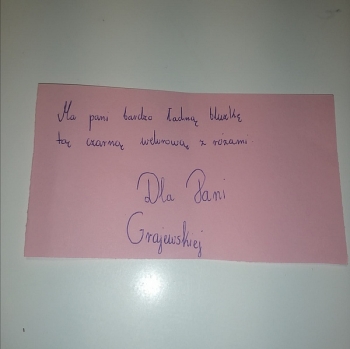 Ma pani bardzo ładną bluzkię
tą czarną welurową z różami
Dla Pani
Grajewskiej